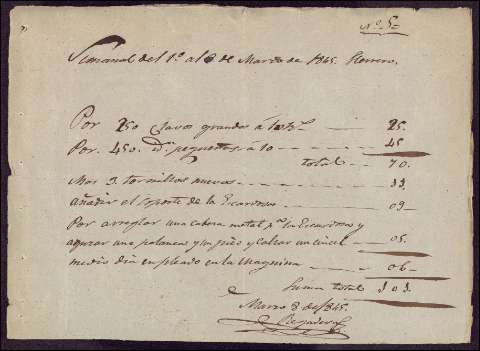 Nº 5
Semanal del 1º al 8 de Marzo de 1845. Herrero.
Por 250 clavos grandes á 25.
Por 450 pequeños á 10 45
total 70.
Mas 3 tornillos nuevos 33.
añadir el soporte de la Escardosa 09
Por arreglar una cabeza metal pª la Escardosa y
aguzar una palanca y un pico y calzar un cincel 05.
medio dia empleado en la Maquina 06
Suma total 103.
Marzo 8 de 1845.